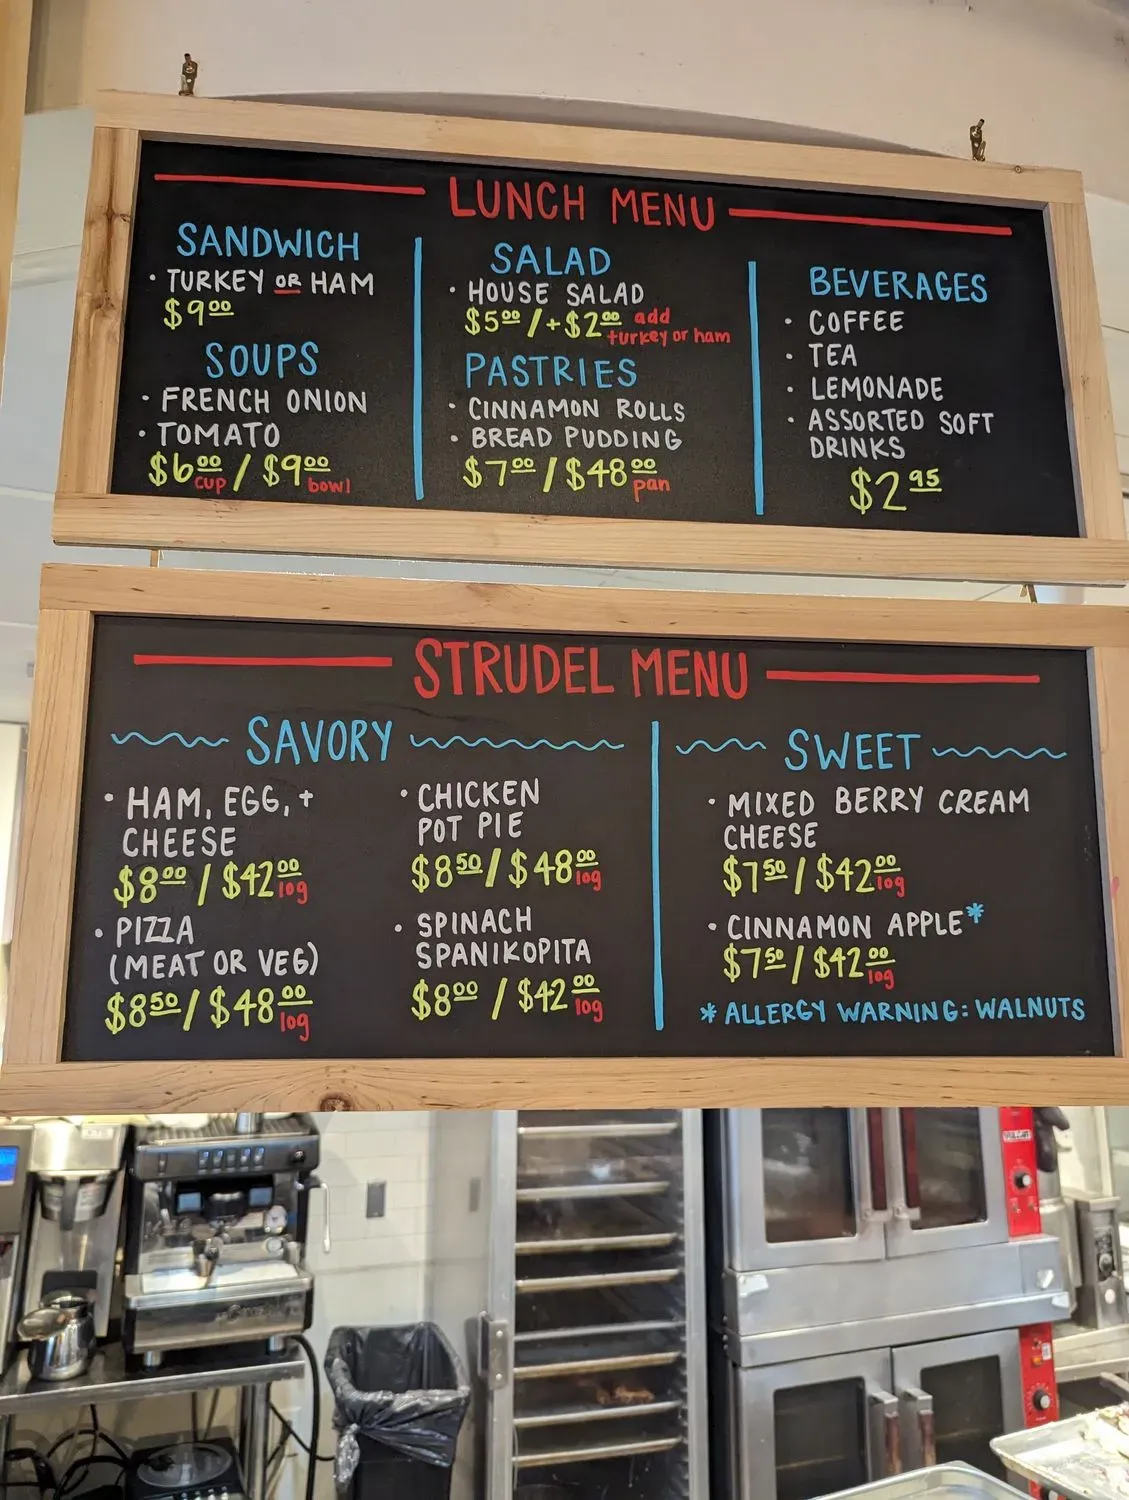 LUNCH MENU
SANDWICH
• TURKEY OR HAM
$9.00
SOUPS
• FRENCH ONION
• TOMATO
$6.00 cup / $9.00 bowl
SALAD
• HOUSE SALAD
$5.00 / +$2.00 add
turkey or ham
PASTRIES
• CINNAMON ROLLS
• BREAD PUDDING
$7.00 / $48.00 pan
BEVERAGES
• COFFEE
• TEA
• LEMONADE
• ASSORTED SOFT
DRINKS
$2.95
STRUDEL MENU
SAVORY
• HAM, EGG, +
CHEESE
$8.00 / $42.00 log
• PIZZA
(MEAT OR VEG)
$8.50 / $48.00 log
• CHICKEN
POT PIE
$8.50 / $48.00 log
• SPINACH
SPANIKOPITA
$8.00 / $42.00 log
SWEET
• MIXED BERRY CREAM
CHEESE
$7.50 / $42.00 log
• CINNAMON APPLE*
$7.50 / $42.00 log
* ALLERGY WARNING: WALNUTS